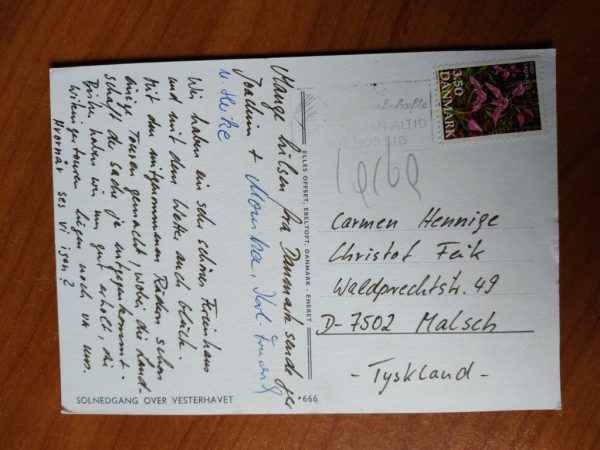 Mange hilsen fra Danmark sender
Joachim + Monika,
u. Heike
Wir haben ein sehr schönes Ferienhaus
und mit dem Wetter auch Glück.
Mit den mitgenommenen Rädern schon
einige Touren gemacht, wobei die Land-
schaft der Sache ja entgegenkommt.
Bisher haben wir uns gut erholt, die
Wikingertouren liegen noch vor uns.
Hvornår ses vi igen?
SOLNEDGANG OVER VESTERHAVET
*666
ELLES OFFSET, EBELTOFT, DANMARK - ENERET
3.50
DANMARK
AN ALTID
Carmen Hennige
Christof Feik
Waldprechtstr. 49
D-7502 Malsch
- Tyskland -